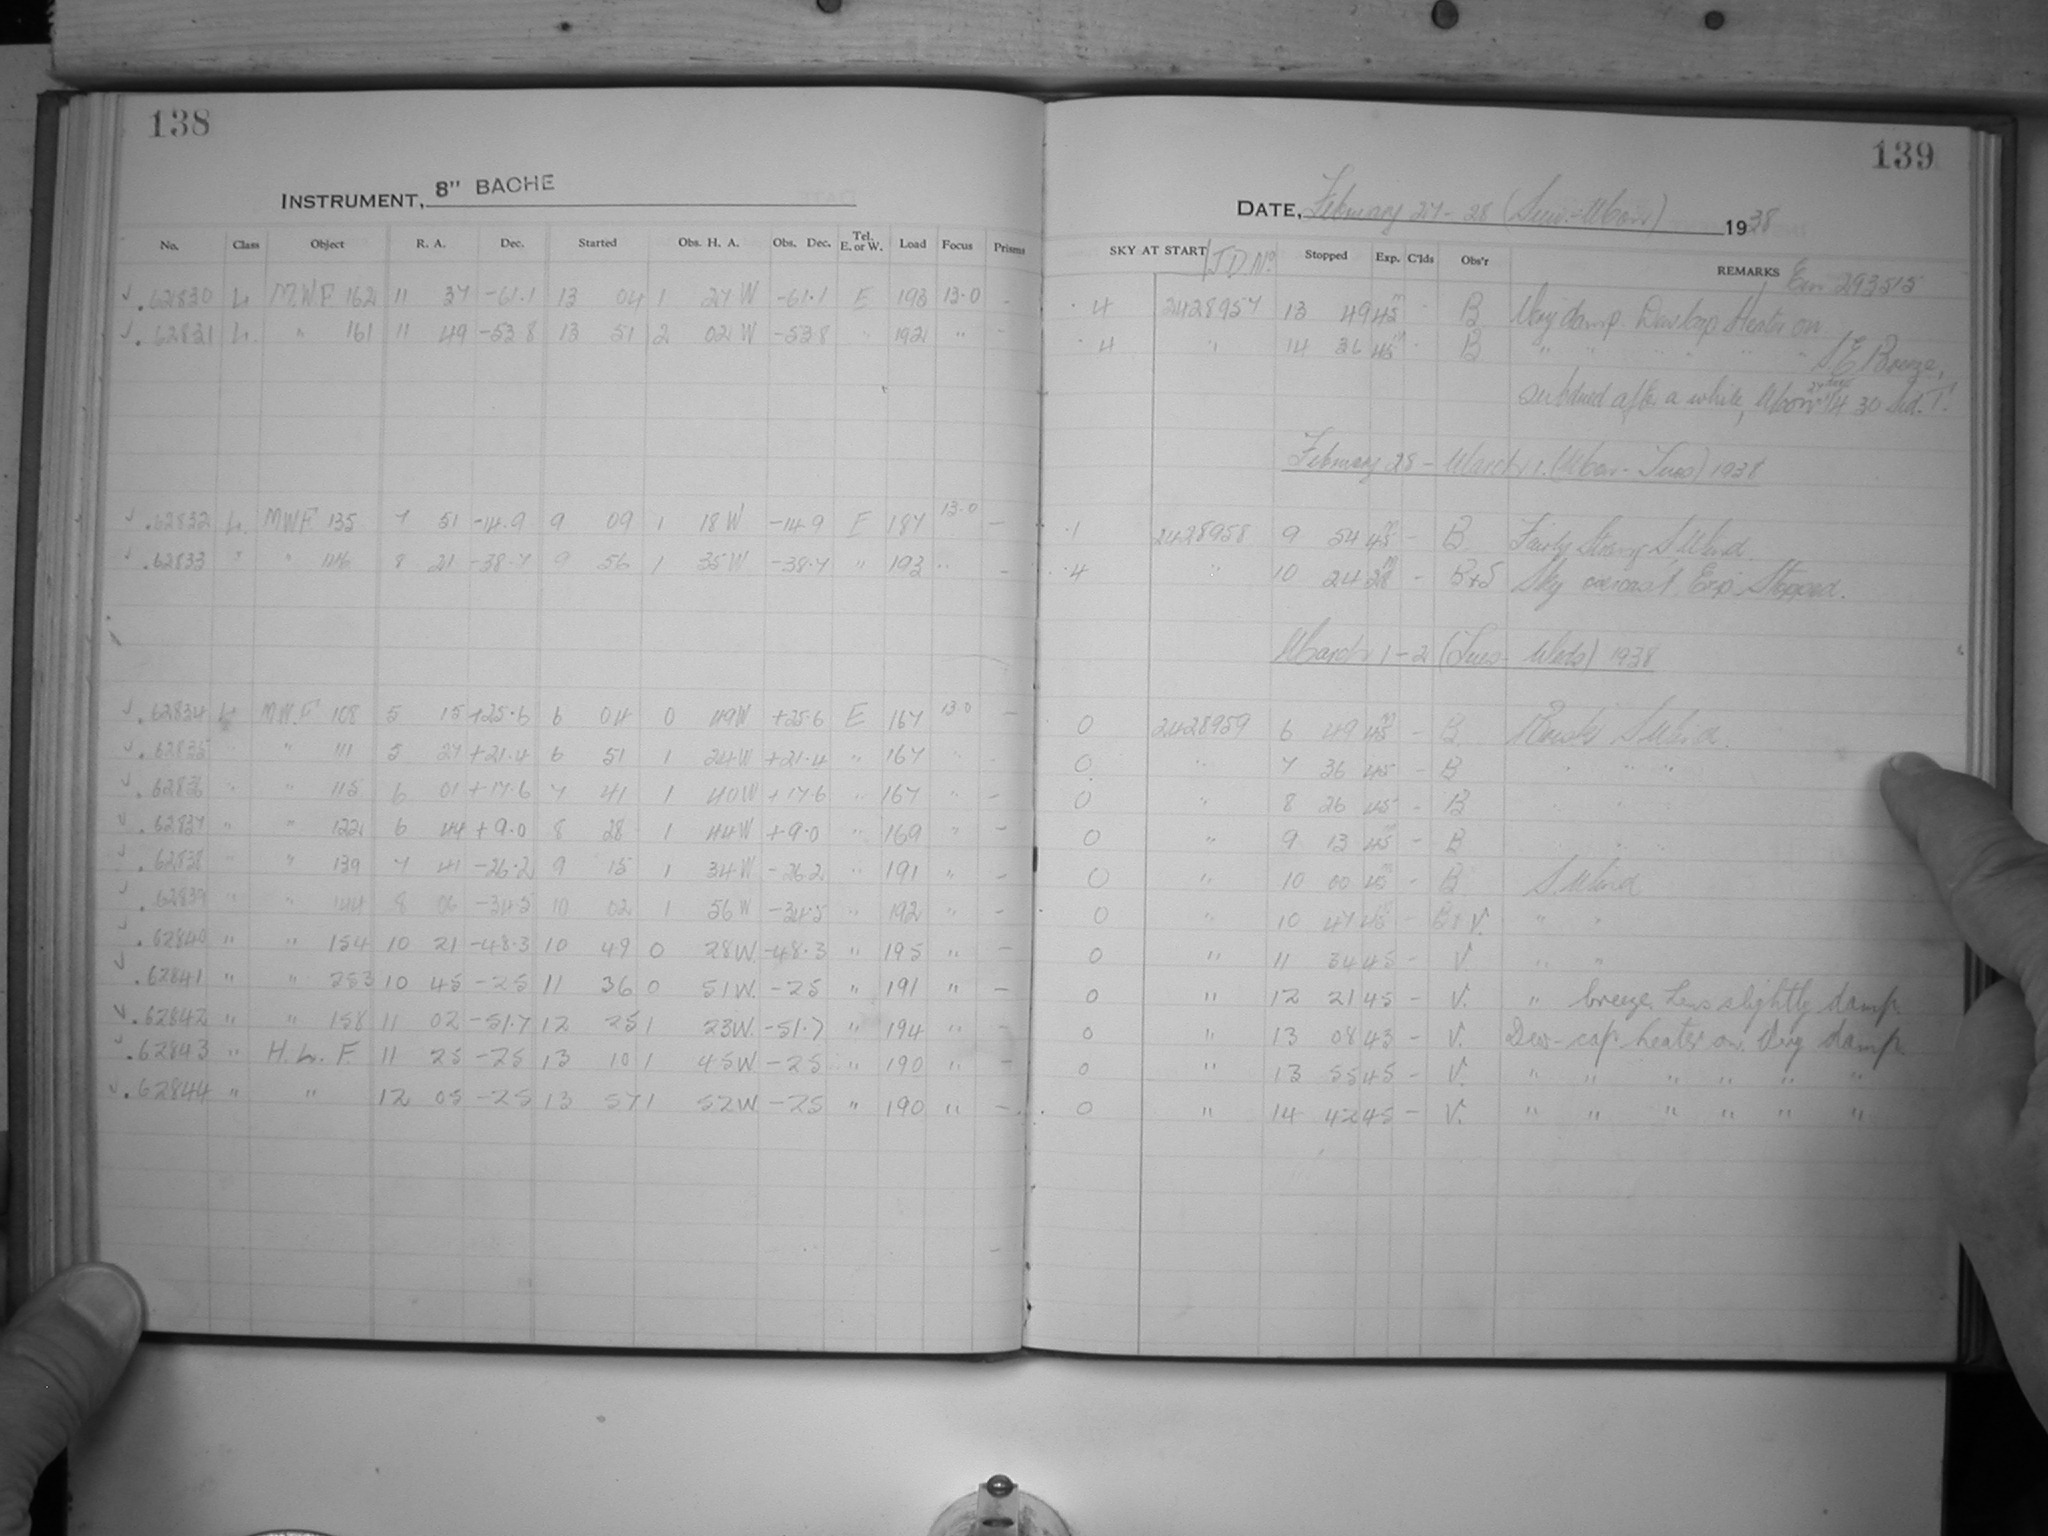 138
INSTRUMENT, 8" BACHE
No. Class Object R. A. Dec. Started Obs. H. A. Obs. Dec. Tel. E. or W. Load Focus Prisms
.62830 L. M.W.F. 162 11 37 -61.1 13 04 1 27 W -61.1 E 193 13.0 -
.62831 L. " 161 11 49 -53.8 13 51 2 02 W -53.8 " 192 "
.62832 L. MWF 135 7 51 -14.9 9 09 1 18 W -14.9 E 187 13.0 -
.62833 " " 146 8 21 -38.7 9 56 1 35 W -38.7 " 193 " -
.62834 L. MWF 108 5 15 +25.6 6 04 0 49W +25.6 E 167 13.0 -
.62835 " " 111 5 27 +21.4 6 51 1 24W +21.4 " 167 "
.62836 " " 115 6 01 +17.6 7 41 1 40W +17.6 " 167 " -
.62837 " " 122 6 44 +9.0 8 28 1 44W +9.0 " 169 " -
.62838 " " 139 7 41 -26.2 9 15 1 34W -26.2 " 191 " -
.62839 " " 144 8 06 -34.5 10 02 1 56W -34.5 " 192 " -
.62840 " " 154 10 21 -48.3 10 49 0 28W. -48.3 " 195 " -
.62841 " " 253 10 45 -25 11 36 0 51W. -25 " 191 " -
.62842 " " 158 11 02 -51.7 12 25 1 23W. -51.7 " 194 " -
.62843 " H. L. F. 11 25 -25 13 10 1 45W -25 " 190 " -
.62844 " " 12 05 -25 13 57 1 52W -25 " 190 " -
139
DATE, February 27-28 (Sun.-Mon) 1938
SKY AT START J D No. Stopped Exp. C'lds Obs'r REMARKS 293515
4 2428957 13 49 45m - B Very damp. Dewcap Heater on
4 " 14 36 45m - B " " " " " S E Breeze,
after a while, 14 30 Sid. T.
February 28 - March 1. (Mon - Tues) 1938
1 2428958 9 54 45m - B Fairly Strong S. Wind.
4 " 10 24 28m - B+S Sky overcast Exp. Stopped.
March 1-2 (Tues- Weds) 1938
0 2428959 6 49 45m - B S Wind.
0 " 7 36 45 - B " " "
0 " 8 26 45 - B " " "
0 " 9 13 45m - B " " "
0 " 10 00 45m - B S. Wind
0 " 10 47 45 - B+V. " "
0 " 11 34 45 - V. " "
0 " 12 21 45 - V. " breeze. Lens slightly damp
0 " 13 08 43 - V. Dew-cap heater on. Very damp
0 " 13 55 45 - V. " " " " " "
0 " 14 42 45 - V. " " " " " "